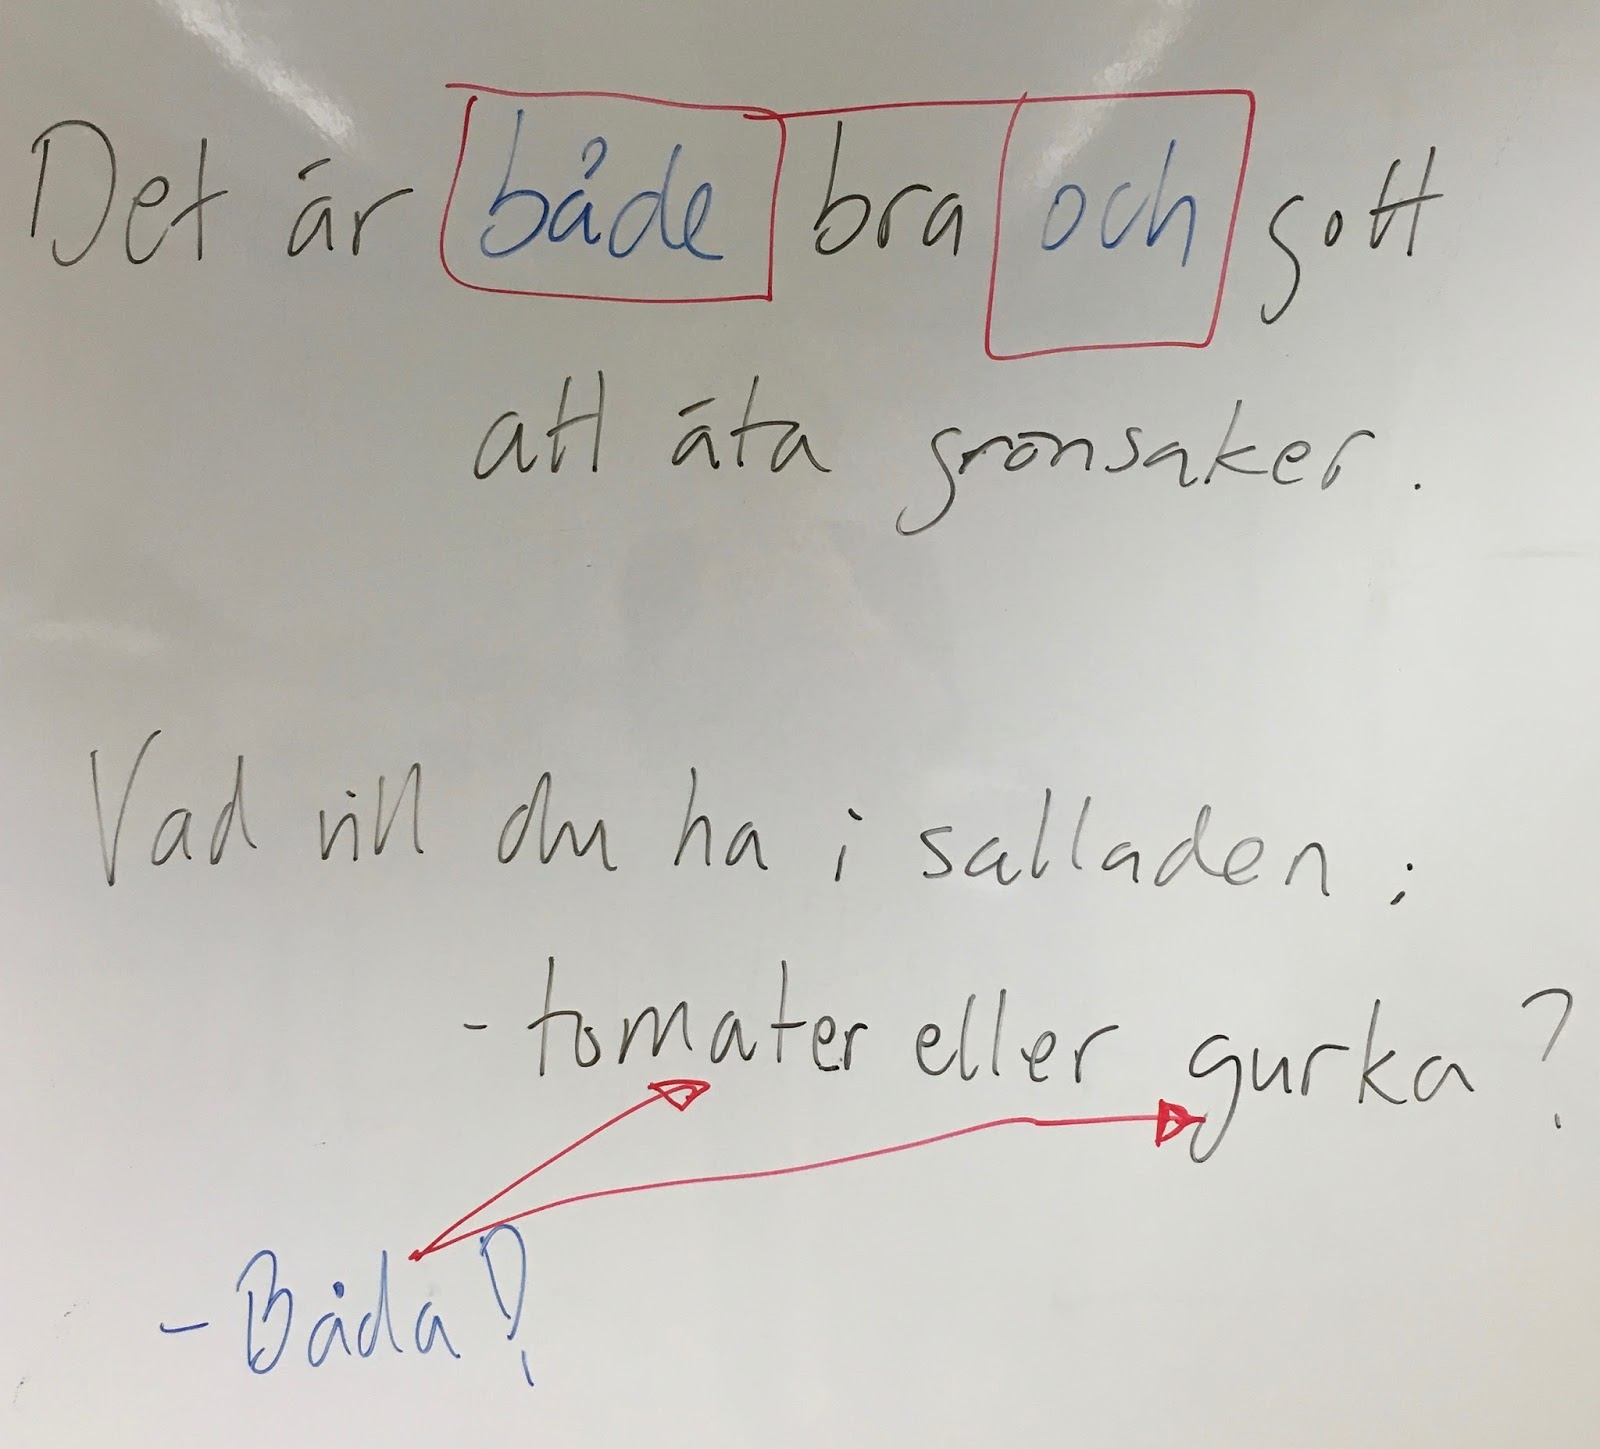 Det är både bra och gott
att äta grönsaker.
Vad vill du ha i salladen;
- tomater eller gurka?
- Båda!